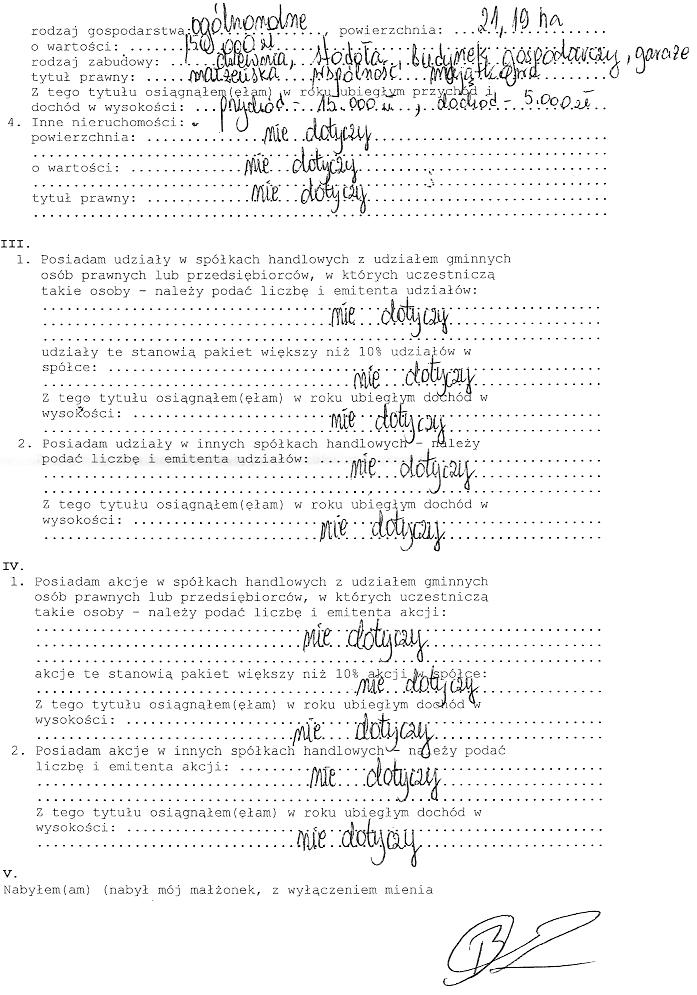 rodzaj gospodarstwa: ogólnorolne, powierzchnia: 21,19 ha
o wartości: 150.000 zł
rodzaj zabudowy: drewnia, stodoła, budynek gospodarczy, garaże
tytuł prawny: małżeńska wspólność majątkowa
Z tego tytułu osiągnąłem(ęłam) w roku ubiegłym przychód i
dochód w wysokości: przychód - 15.000 zł, dochód - 5.000 zł
4. Inne nieruchomości:
powierzchnia: nie dotyczy
o wartości: nie dotyczy
tytuł prawny: nie dotyczy
III.
1. Posiadam udziały w spółkach handlowych z udziałem gminnych
osób prawnych lub przedsiębiorców, w których uczestniczą
takie osoby - należy podać liczbę i emitenta udziałów:
nie dotyczy
udziały te stanowią pakiet większy niż 10% udziałów w
spółce: nie dotyczy
Z tego tytułu osiągnąłem(ęłam) w roku ubiegłym dochód w
wysokości: nie dotyczy
2. Posiadam udziały w innych spółkach handlowych - należy
podać liczbę i emitenta udziałów: nie dotyczy
Z tego tytułu osiągnąłem(ęłam) w roku ubiegłym dochód w
wysokości: nie dotyczy
IV.
1. Posiadam akcje w spółkach handlowych z udziałem gminnych
osób prawnych lub przedsiębiorców, w których uczestniczą
takie osoby - należy podać liczbę i emitenta akcji:
nie dotyczy
akcje te stanowią pakiet większy niż 10% akcji w spółce:
nie dotyczy
Z tego tytułu osiągnąłem(ęłam) w roku ubiegłym dochód w
wysokości: nie dotyczy
2. Posiadam akcje w innych spółkach handlowych - należy podać
liczbę i emitenta akcji: nie dotyczy
Z tego tytułu osiągnąłem(ęłam) w roku ubiegłym dochód w
wysokości: nie dotyczy
V.
Nabyłem(am) (nabył mój małżonek, z wyłączeniem mienia